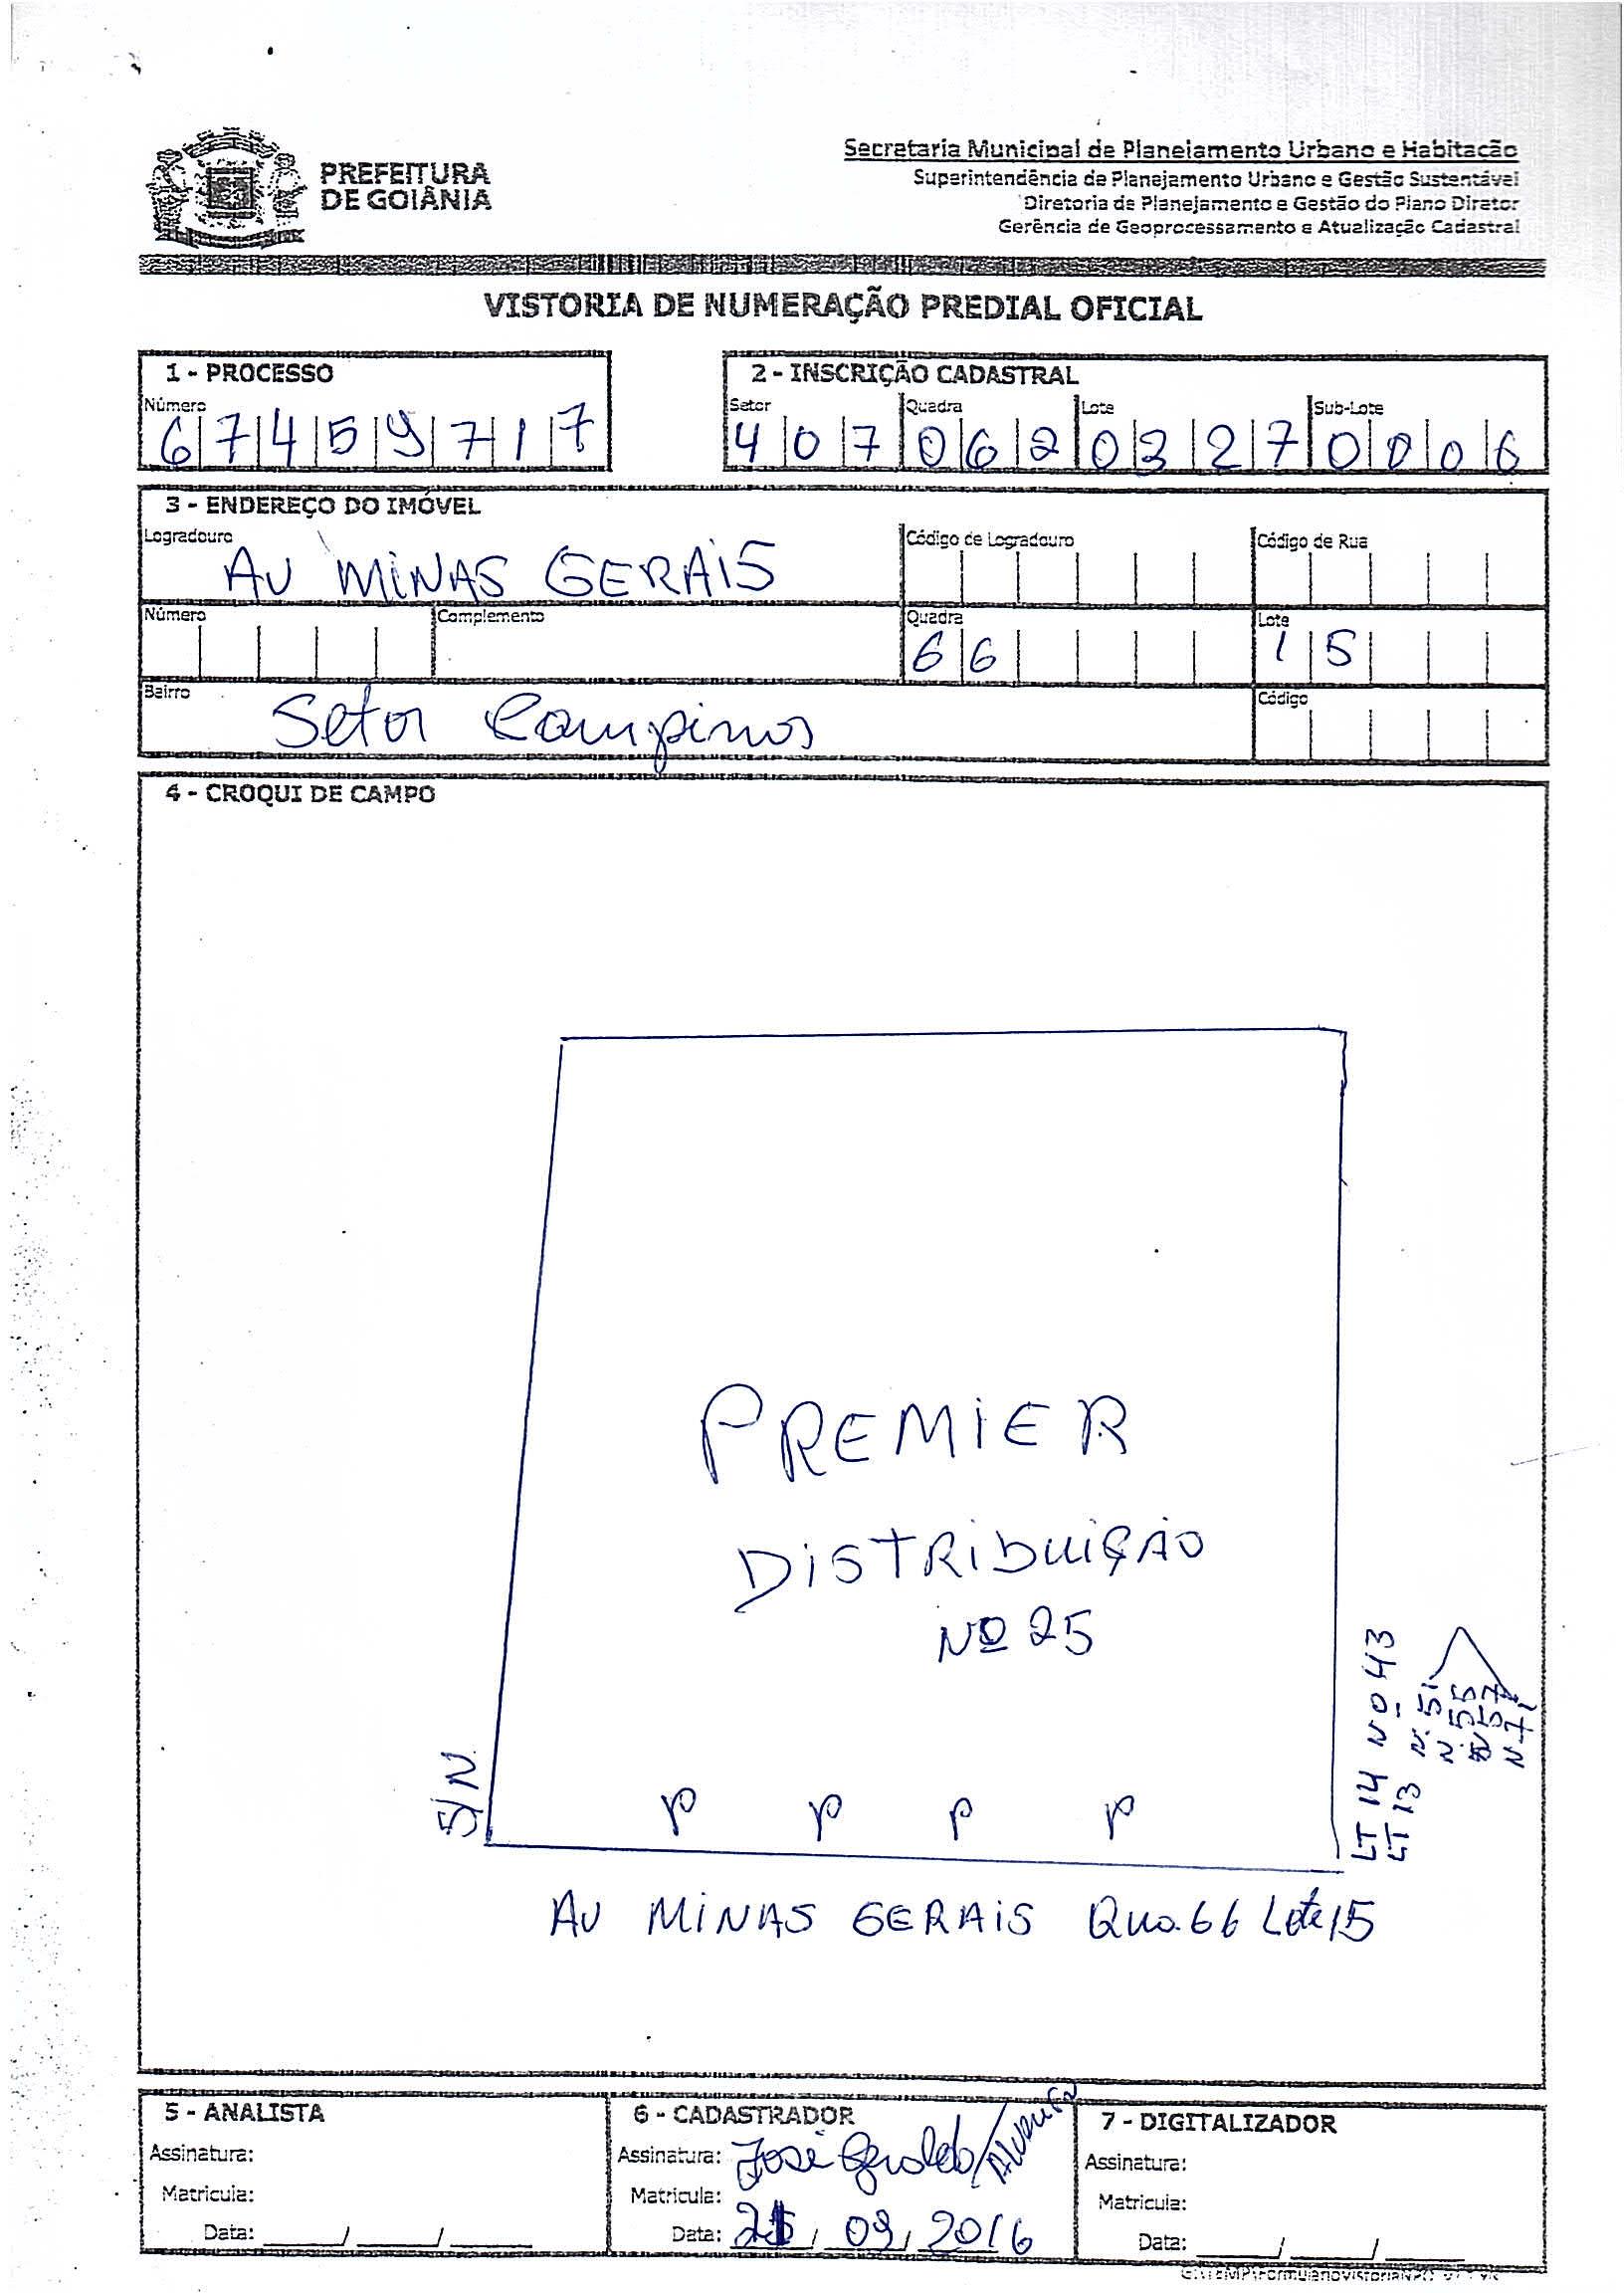 PREFEITURA
DE GOIÂNIA
Secretaria Municipal de Planejamento Urbano e Habitação
Superintendência de Planejamento Urbano e Gestão Sustentável
Diretoria de Planejamento e Gestão do Plano Diretor
Gerência de Geoprocessamento e Atualização Cadastral
VISTORIA DE NUMERAÇÃO PREDIAL OFICIAL
1 - PROCESSO
Número
67459717
2 - INSCRIÇÃO CADASTRAL
Setor Quadra Lote Sub-Lote
407 062 0327 0006
3 - ENDEREÇO DO IMÓVEL
Logradouro Código de Logradouro Código de Rua
AV MINAS GERAIS
Número Complemento Quadra Lote
66 15
Bairro Código
Setor Campinas
4 - CROQUI DE CAMPO
PREMIER
DISTRIBUIÇÃO
Nº 25
S/N
LT 14 Nº 43
LT 13 N. 51
N. 55
N 57
N-71
P P P P
AV MINAS GERAIS Qua. 66 Lote 15
5 - ANALISTA
Assinatura:
Matricula:
Data: ____/____/____
6 - CADASTRADOR
Assinatura: José Geraldo /
Matricula:
Data: / 09 / 2016
7 - DIGITALIZADOR
Assinatura:
Matricula:
Data: ____/____/____